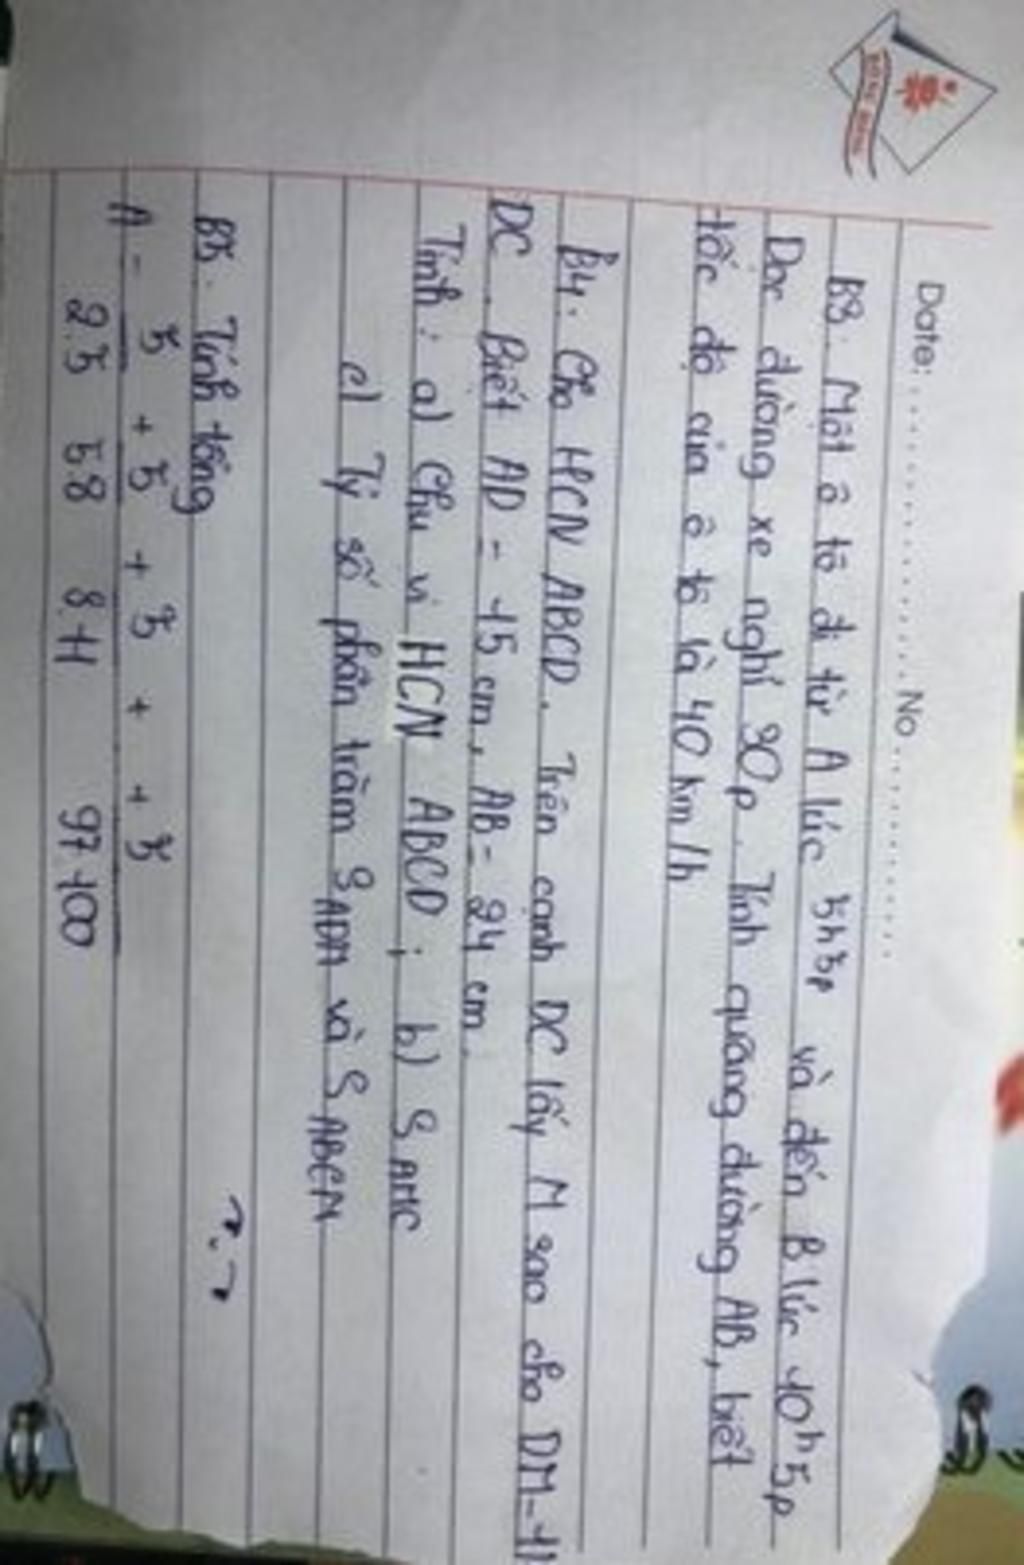 Date: ............... No ...............
B3. Một ô tô đi từ A lúc 5h5p và đến B lúc 10h5p
Dọc đường xe nghỉ 30p. Tính quãng đường AB, biết
tốc độ của ô tô là 40 km/h
B4. Cho HCN ABCD. Trên cạnh DC lấy M sao cho DM=
DC. Biết AD = 15 cm, AB = 24 cm.
Tính: a) Chu vi HCN ABCD; b) SAMC
c) Tỷ số phần trăm SADM và SABCM
B5. Tính tổng
A = 3/2.5 + 3/5.8 + 3/8.11 + + 3/97.100